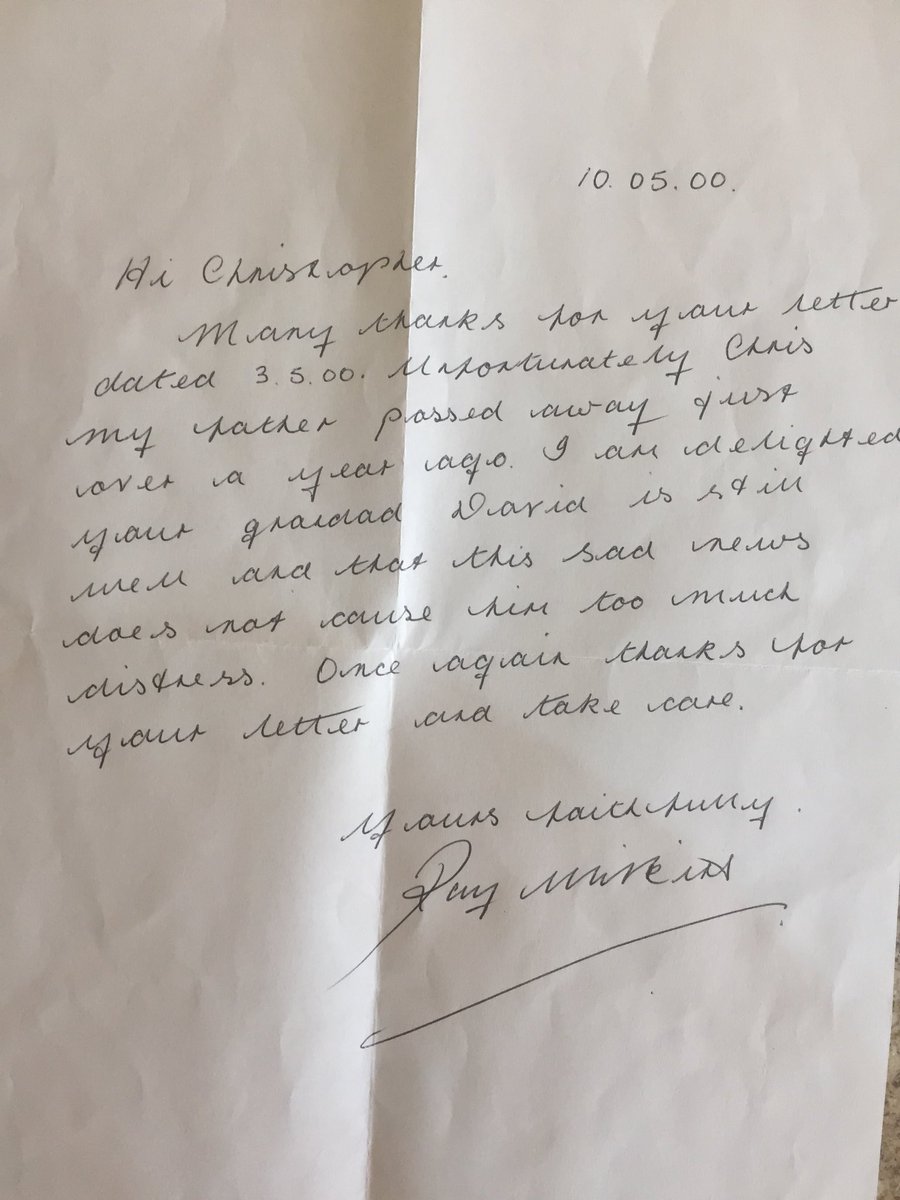 10.05.00.
Hi Christopher.
Many thanks for your letter
dated 3.5.00. Unfortunately Chris
my father passed away just
over a year ago. I am delighted
your grandad David is still
well and that this sad news
does not cause him too much
distress. Once again thanks for
your letter and take care.
Yours faithfully.
Ray